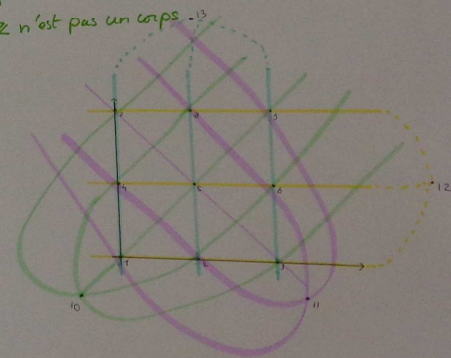 n'est pas un corps
13
7 8 9
12
4 5 6
1 2 3
10
11